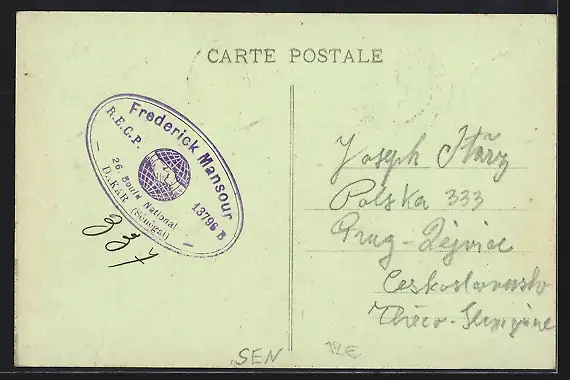 CARTE POSTALE
Frederick Mansour
R.E.C.P.
13796 B
26, Boul'd National
DAKAR (Sénégal)
337
Joseph Stärz
Polska 333
Prag - Dejvice
Československo
SEN
12€